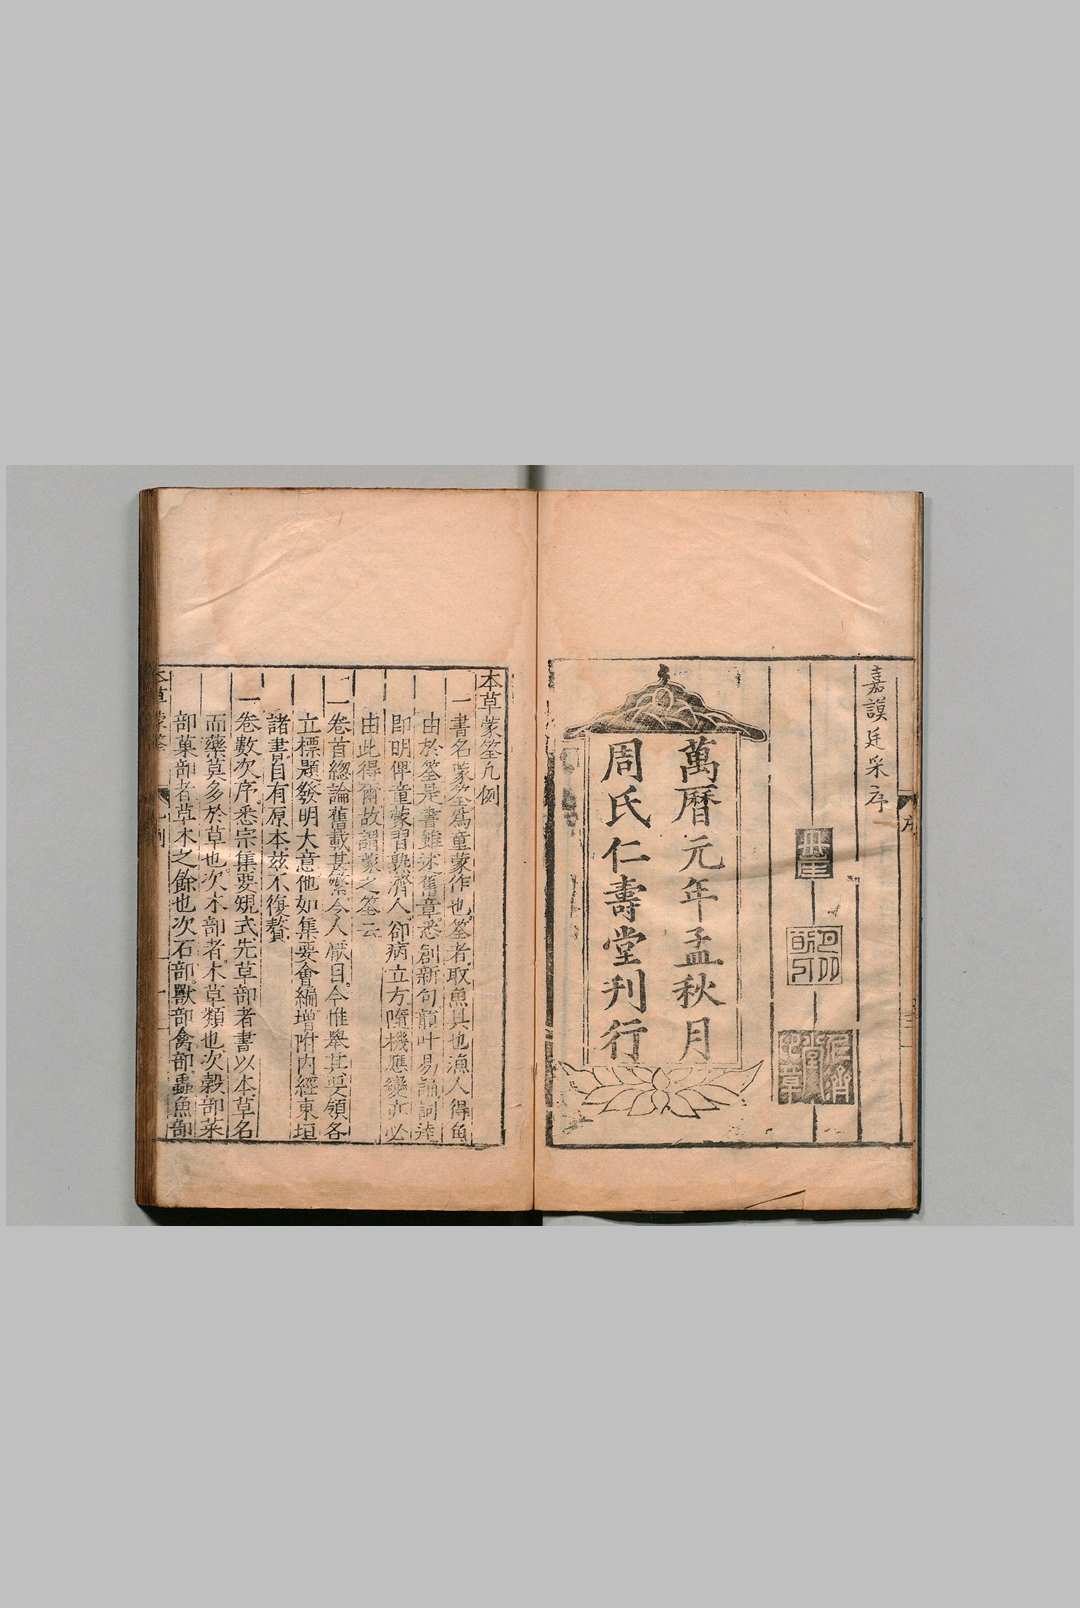 嘉謨廷采序
萬曆元年孟秋月
周氏仁壽堂刊行
本草蒙筌凡例
一書名蒙筌為童蒙作也筌者取魚具也漁人得魚
由於筌是書雖述舊章悉創新句韻叶易誦詞達
即明俾童蒙習熟濟人卻病立方隨機應變亦必
由此得爾故謂蒙之筌云
一卷首總論舊載甚繁令人厭目今惟舉其要領各
立標題發明大意他如集要會編增附內經東垣
諸書自有原本茲不復贅
一卷數次序悉宗集要規式先草部者書以本草名
而藥莫多於草也次木部者木草類也次穀部菜
部菓部者草木之餘也次石部獸部禽部蟲魚部